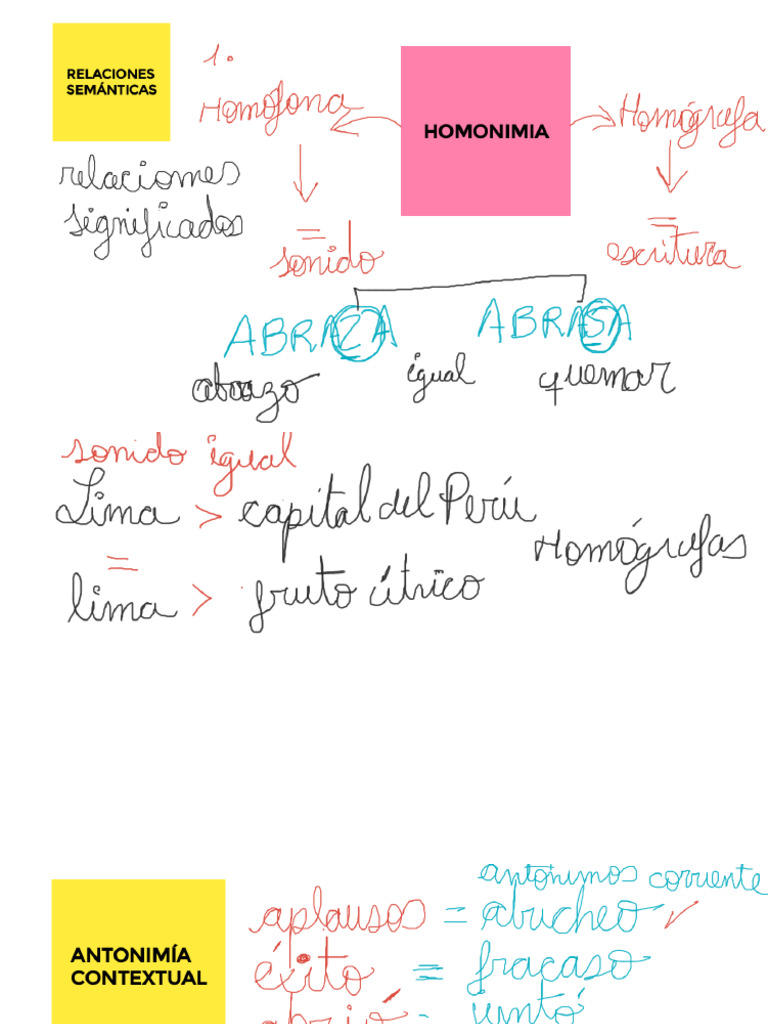 RELACIONES
SEMÁNTICAS
relaciones
significados
1.
Homófona
HOMONIMIA
Homógrafa
=
sonido
=
escritura
ABRAZA ABRASA
abrazo igual quemar
sonido igual
Lima > capital del Perú
=
lima > fruto cítrico
Homógrafas
ANTONIMÍA
CONTEXTUAL
antónimos corriente
aplausos = abucheo ✓
éxito = fracaso